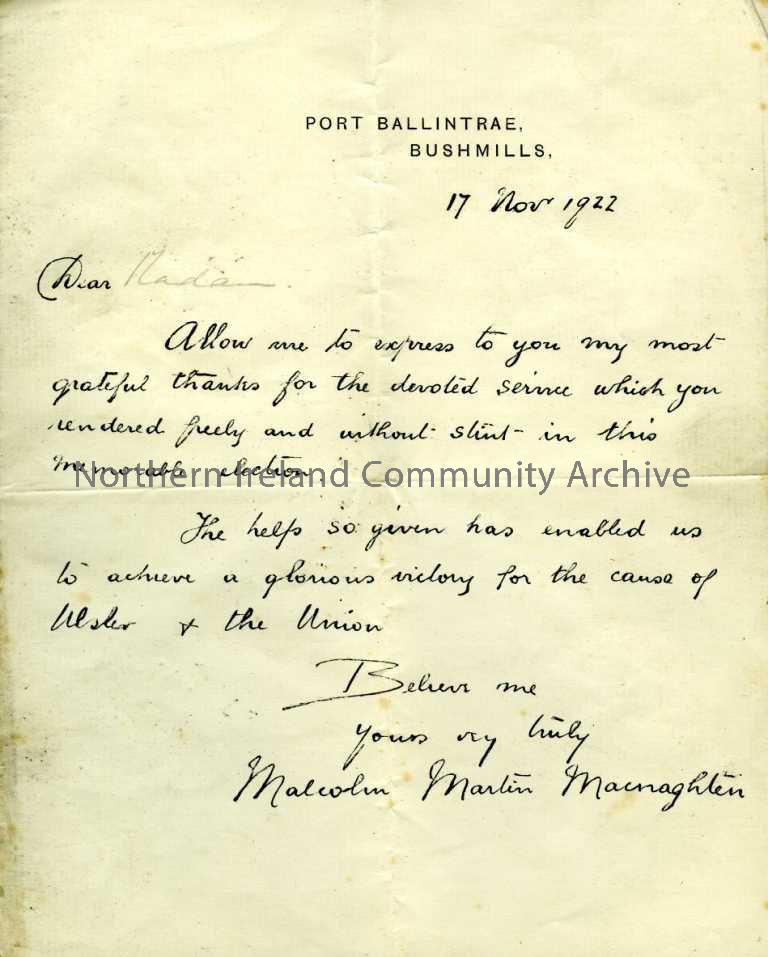 PORT BALLINTRAE,
BUSHMILLS,
17 Novr 1922
Dear Madam.
Allow me to express to you my most
grateful thanks for the devoted service which you
rendered freely and without stint in this
memorable election.
Northern Ireland Community Archive
The help so given has enabled us
to achieve a glorious victory for the cause of
Ulster & the Union
Believe me
yours very truly
Malcolm Martin Macnaghten